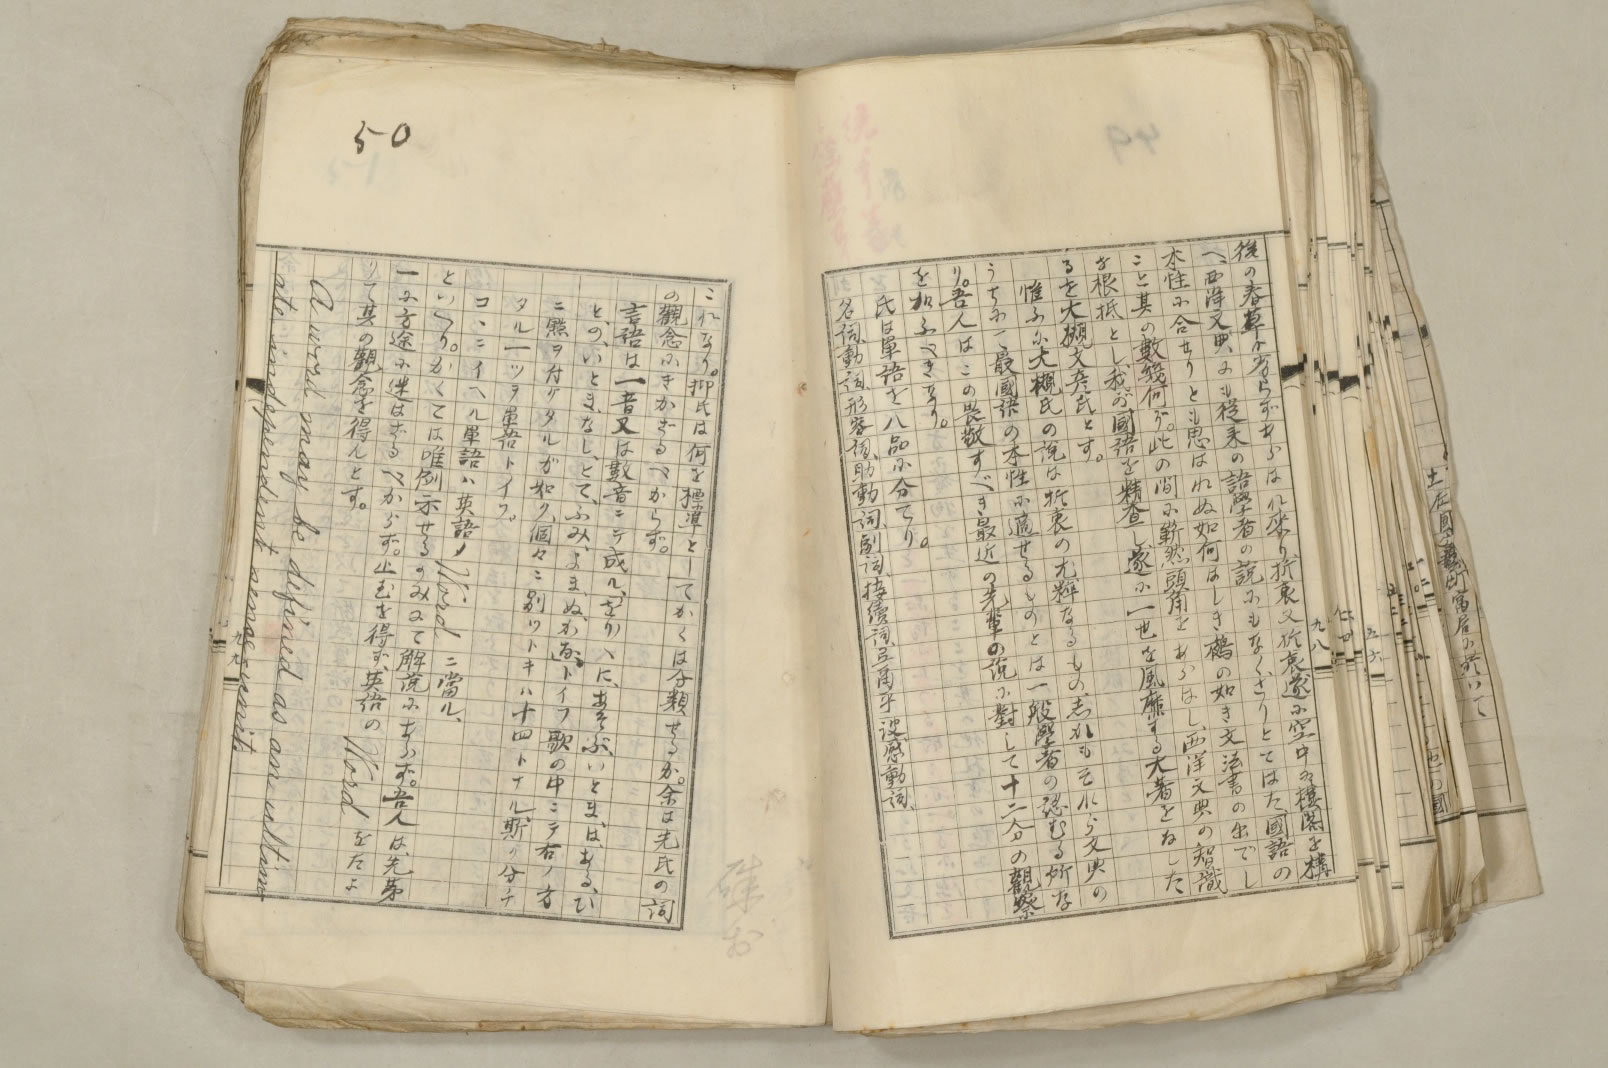 後の春草
ならずあらはれ来り折衷又折衷遂に空中の樓閣を構
へ、西洋文典にも從来の語學者の説にもなくさりとてはた國語の
本性に合せりとも思はれぬ如何はしき鵺の如き文法書の出でし
こと其の數幾何ぞ。此の間に嶄然頭角をあらはし、西洋文典の智識
を根抵とし我が國語を精査し遂に一世を風靡する大著をねした
るを大槻文彦氏とす。
惟ふに大槻氏の説は折衷の尤粹なるもの、志かもそれら文典の
うちにて最國語の本性に適せるものとは一般學者の認むる所な
り。吾人はこの畏敬すべき最近の先輩の説に對して十二分の觀察
を加ふべきなり。
氏は單語を八品に分てり。
名詞、動詞、形容詞、助動詞、副詞、接續詞、弖爾乎波、感動詞、
九八
50
これなり。抑氏は何を標準としてかくは分類せるか。余は先氏の詞
の觀念にきかざるべからず。
言語は一音又は數音ニテ成ル、をりへに、あそぶ、いとまは、ある、ひ
との、いとま、なし、とて、ふみ、よま、ぬ、かな、トイフ歌の中ニテ右ノ方
ニ照ヲ付ケタルガ如ク、個々ニ別ツトキハ十四トナル、斯ク分チ
タル一ツヲ單語トイフ。
コヽニイヘル單語ハ英語ノ Word ニ當ル、
といへり。かくては唯例示せるのみにて解説にあらず。吾人は先第
一に方途に迷はざるべからず。止むを得ず、英語の Word をたよ
りて其の觀念を得んとす。
A word may be defined as an ultim-
ate independent sense-unit
九九